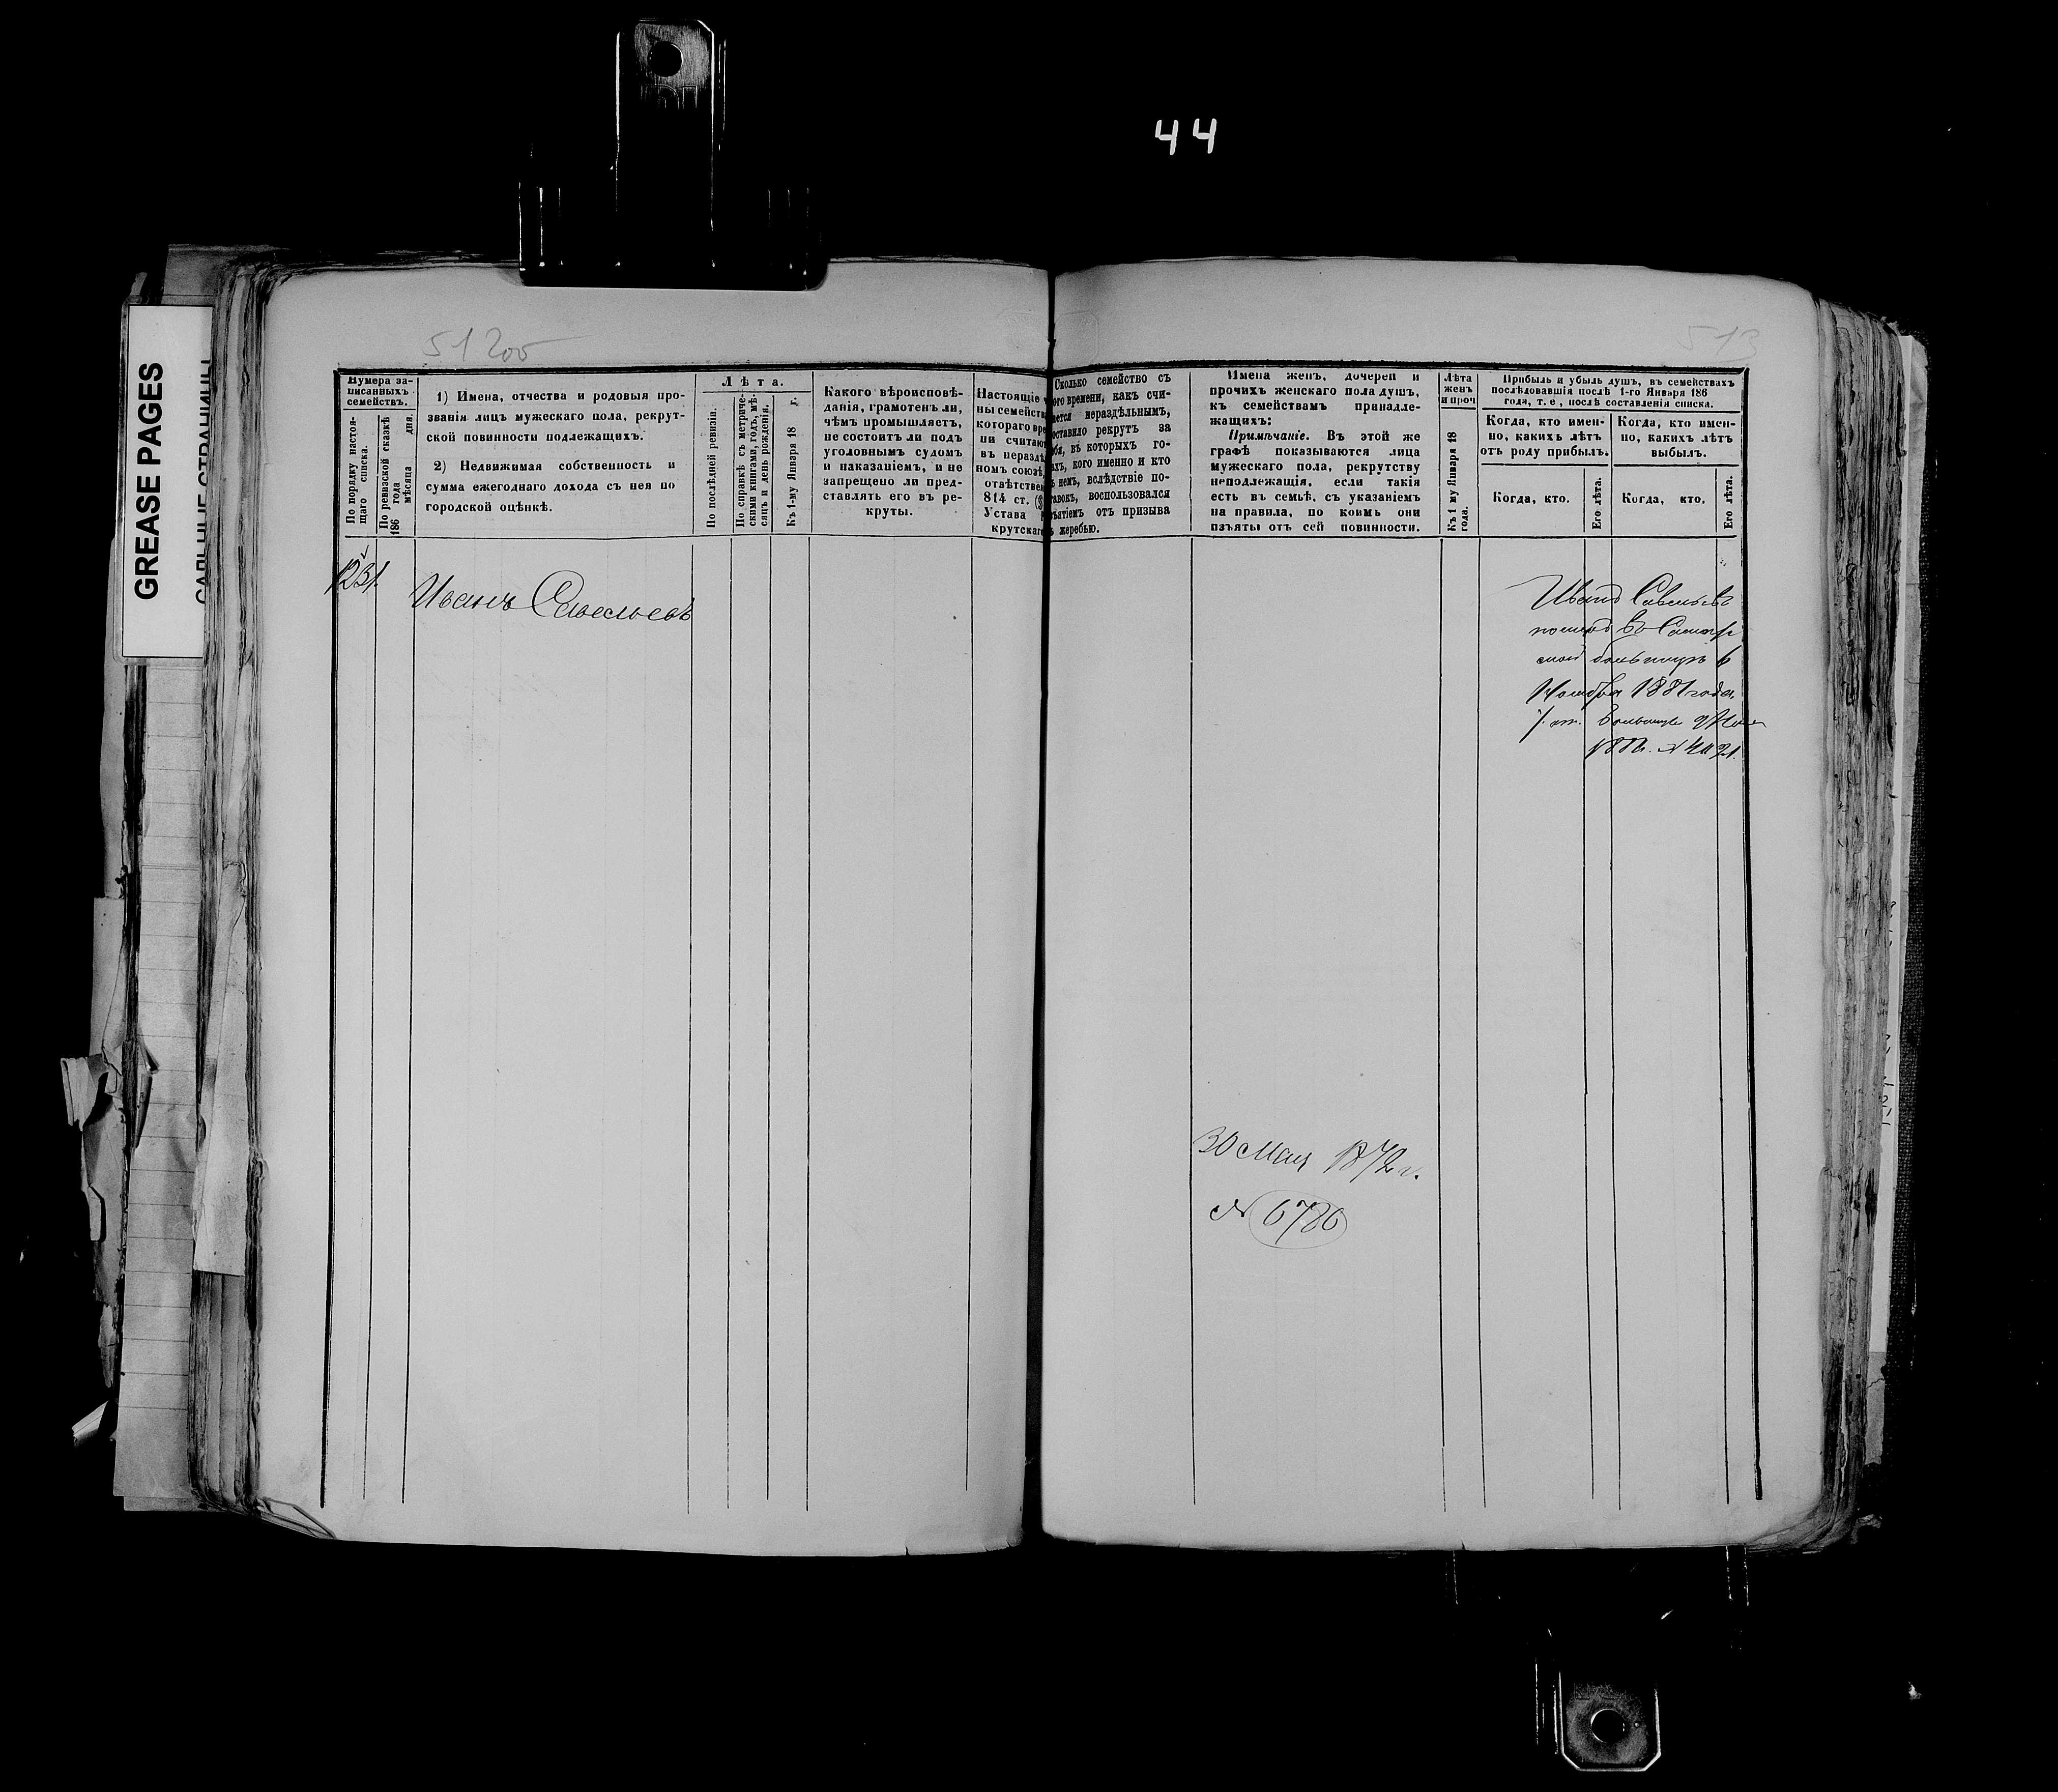 44
GREASE PAGES
САЛЬНЫЕ СТРАНИЦЫ
513
Нумера за-
писанныхъ
семействъ.
По порядку настоя-
щаго списка.
По ревизской сказкѣ
186 года
мѣсяца дня.
1) Имена, отчества и родовыя про-
званія лицъ мужескаго пола, рекрут-
ской повинности подлежащихъ.
2) Недвижимая собственность и
сумма ежегоднаго дохода съ нея по
городской оцѣнкѣ.
Лѣта.
По послѣдней ревизіи.
По справкѣ съ метриче-
скими книгами, годъ, мѣ-
сяцъ и день рожденія.
Къ 1-му Января 18 г.
Какого вѣроисповѣ-
данія, грамотенъ ли,
чѣмъ промышляетъ,
не состоитъ ли подъ
уголовнымъ судомъ
и наказаніемъ, и не
запрещено ли пред-
ставлять его въ ре-
круты.
Настоящіе
ны семейств
котораго вре
ни считаю
въ нераздѣ
номъ союзѣ,
отвѣтствен
814 ст.
Устава
крутскаг
Сколько семейство съ
ого времени, какъ счи-
ается нераздѣльнымъ,
оставило рекрутъ за
ебя, въ которыхъ го-
ахъ, кого именно и кто
ъ немъ, вслѣдствіе по-
тавокъ, воспользовался
зъятіемъ отъ призыва
ъ жеребью.
Имена женъ, дочерей и
прочихъ женскаго пола душъ,
къ семействамъ принадле-
жащихъ:
Примѣчаніе. Въ этой же
графѣ показываются лица
мужескаго пола, рекрутству
неподлежащія, если такія
есть въ семьѣ, съ указаніемъ
на правила, по коимъ они
изъяты отъ сей повинности.
Лѣта
женъ
и проч
Къ 1 му Января 18
года.
Прибыль и убыль душъ, въ семействахъ
послѣдовавшія послѣ 1-го Января 186
года, т. е., послѣ составленія списка.
Когда, кто имен-
но, какихъ лѣтъ
отъ роду прибылъ.
Когда, кто имен-
но, какихъ лѣтъ
выбылъ.
Когда, кто.
Его лѣта.
Когда, кто.
Его лѣта.
1231.
Иванъ Савельевъ
Иванъ Савельевъ
померъ въ Самар
ской больницѣ 6
Ноября 1881 года,
30 Мая 1872 г.
№ 6786